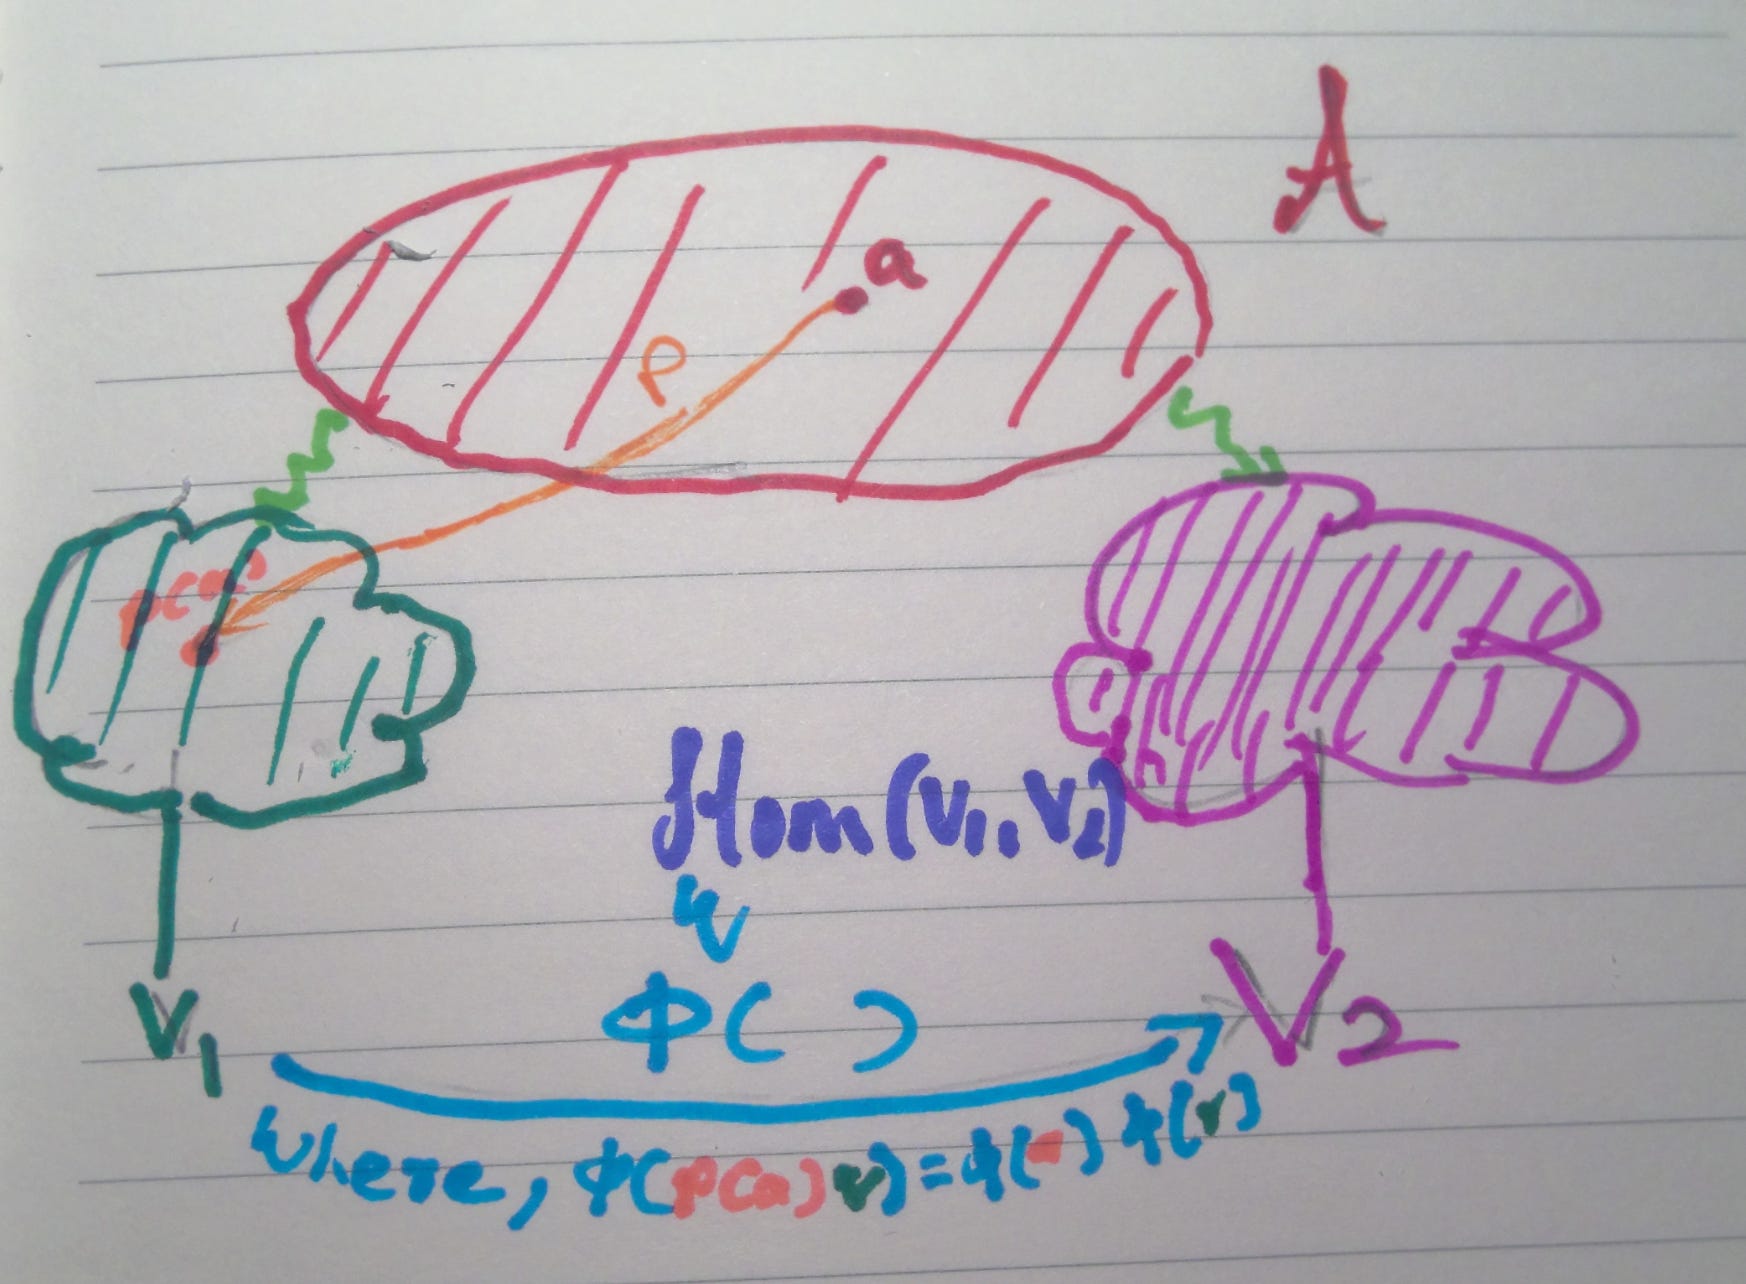 A
a
ρ
ρ(a)
Hom(V₁, V₂)
φ( )
V₁
V₂
where, φ(ρ(a)v)=